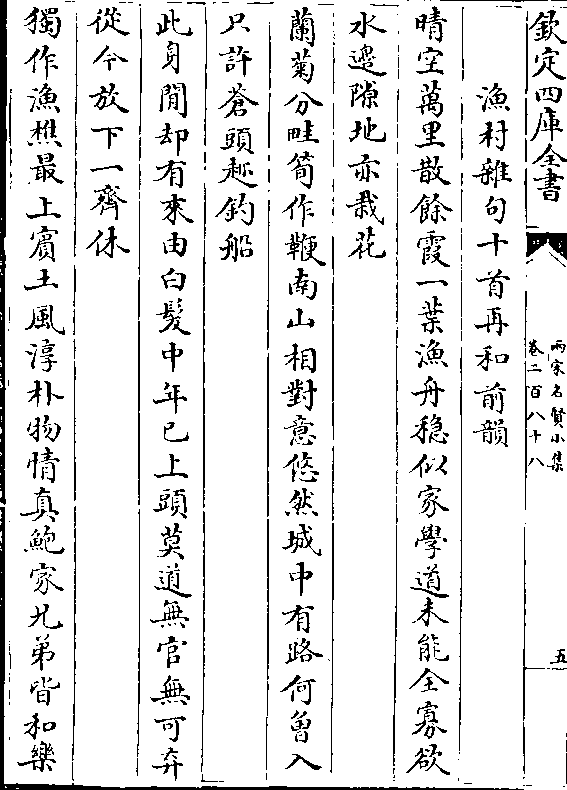 欽定四庫全書
兩宋名賢小集
卷二百八十八
五
漁村雜句十首再和前韻
晴空萬里散餘霞一葉漁舟穏似家學道未能全寡欲
水邊隙地亦栽花
蘭菊分畦筍作鞭南山相對意悠然城中有路何曾入
只許蒼頭趂釣船
此身閒却有來由白髮中年已上頭莫道無官無可弃
從今放下一齊休
獨作漁樵最上賓土風淳朴物情真鮑家兄弟皆和樂